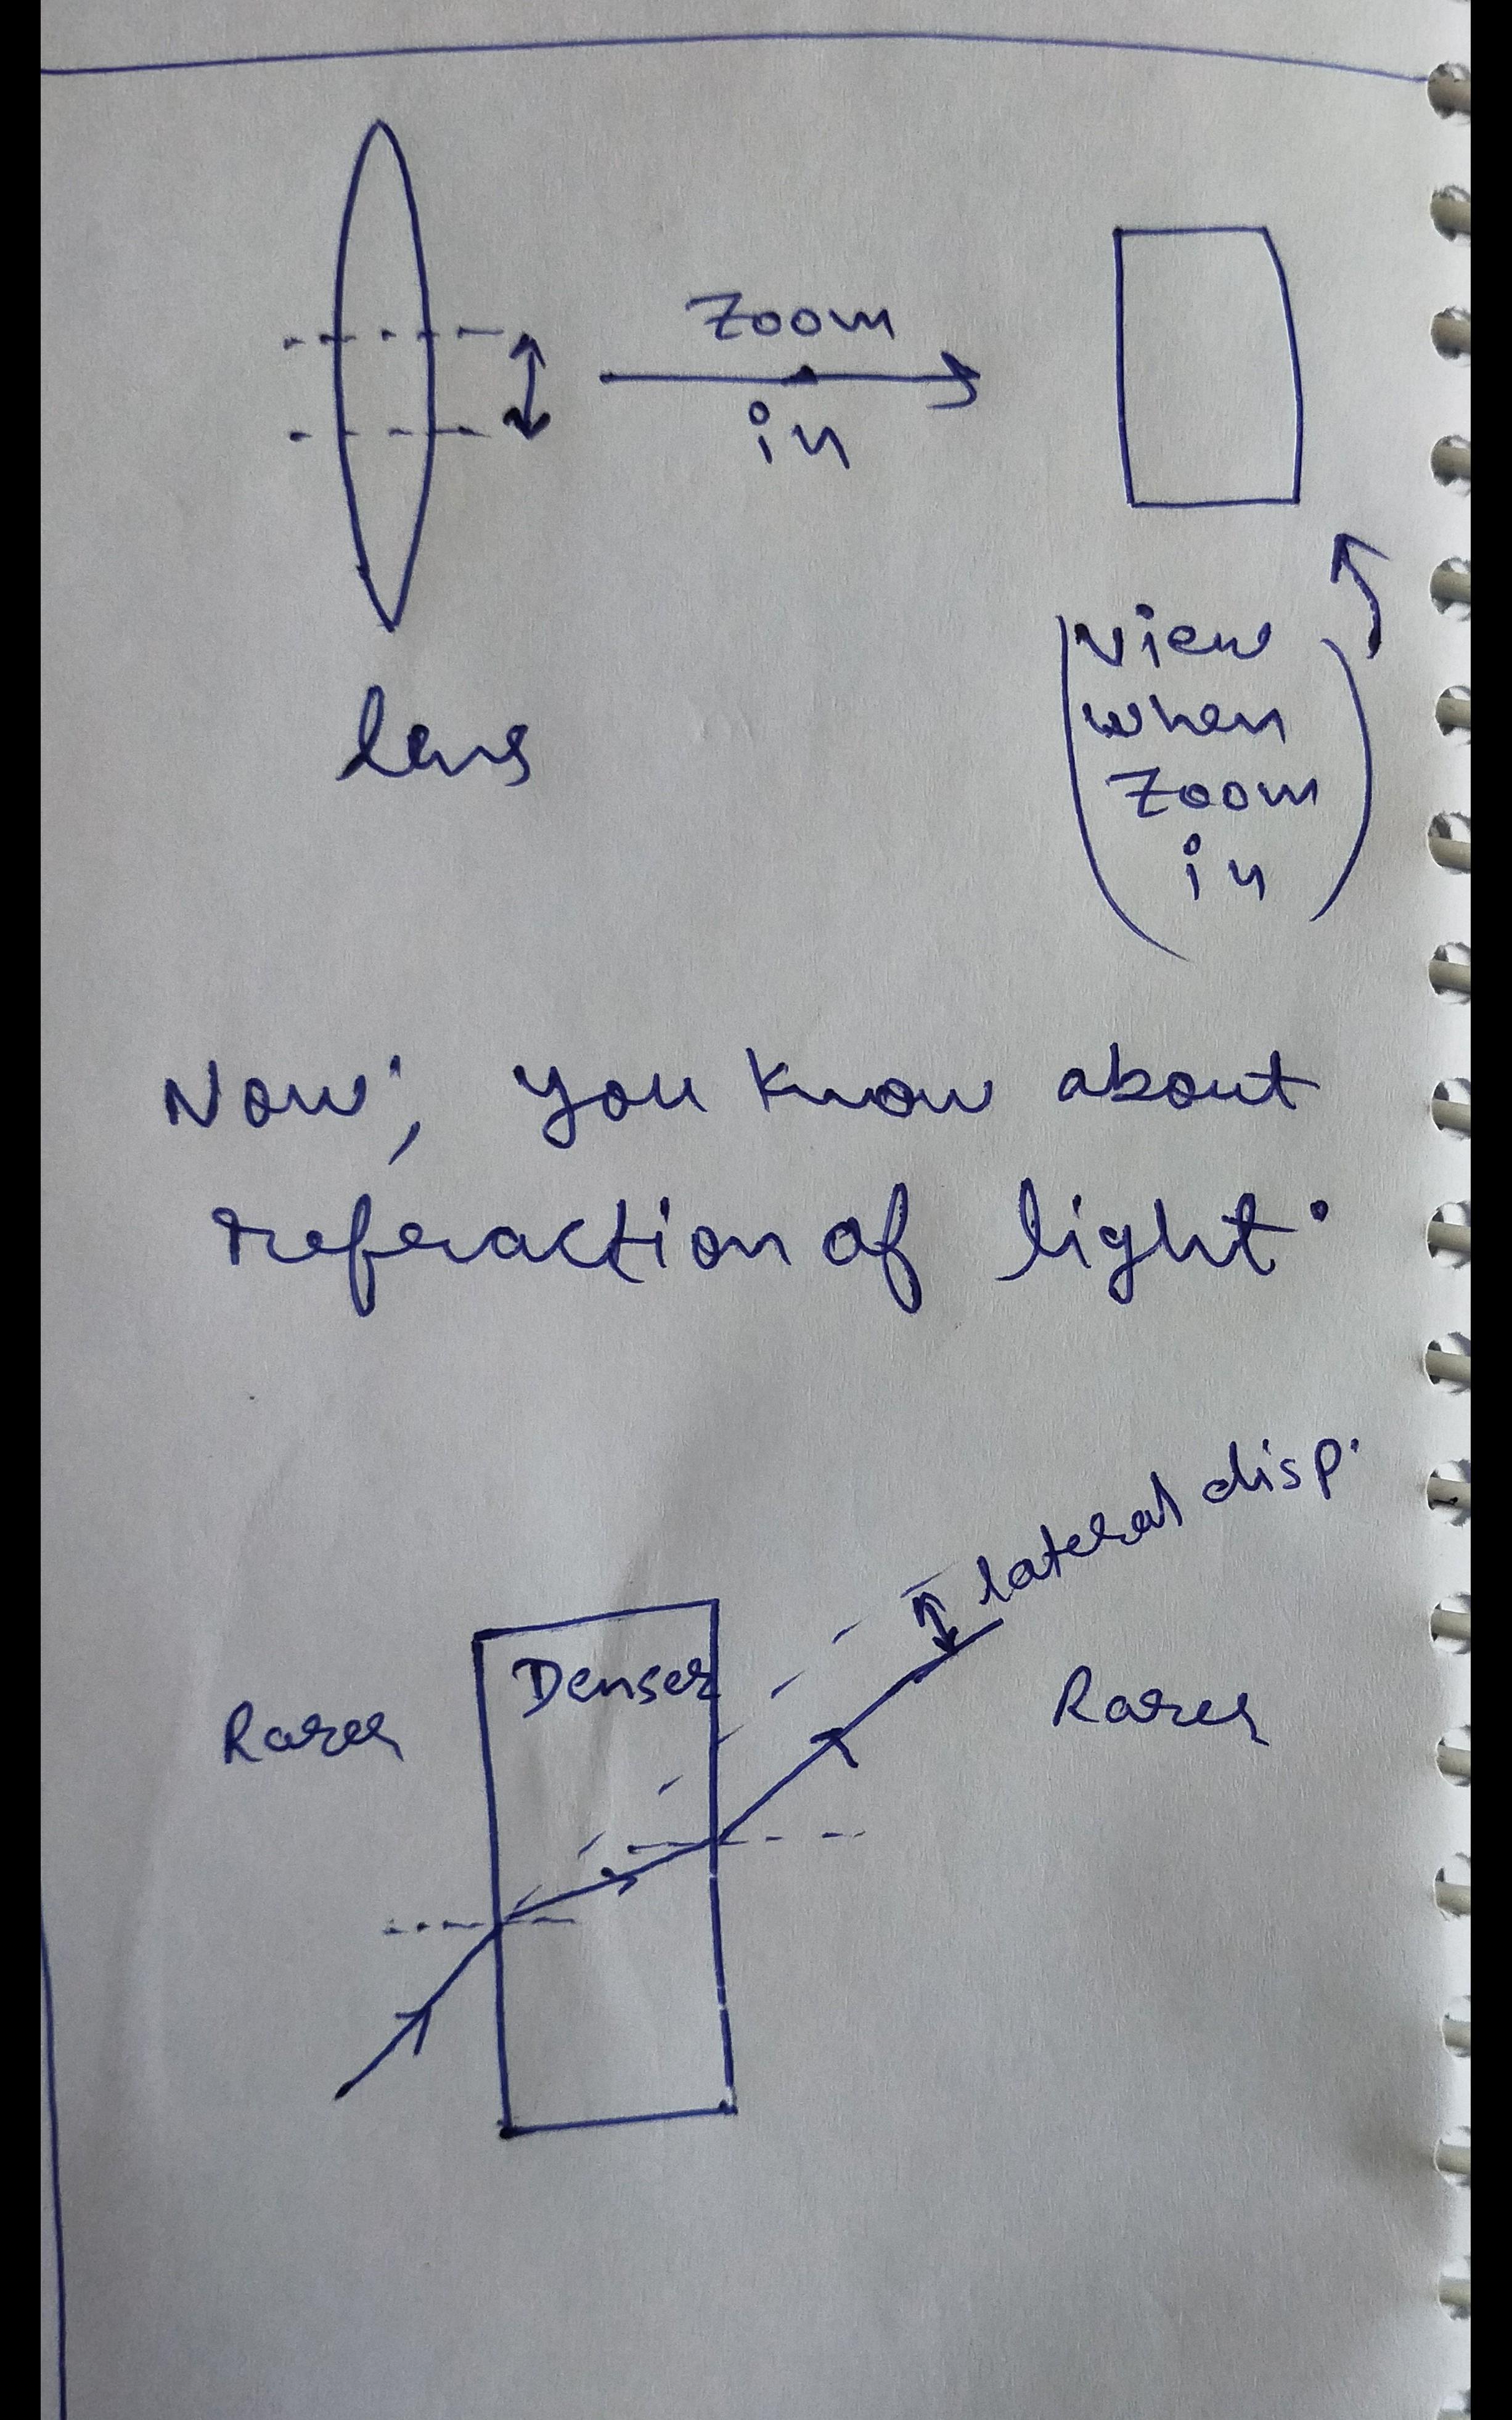 Zoom
in
lens
view
when
Zoom
in
Now, you know about
referaction of light.
lateral disp.
Rarer
Denser
Rarer